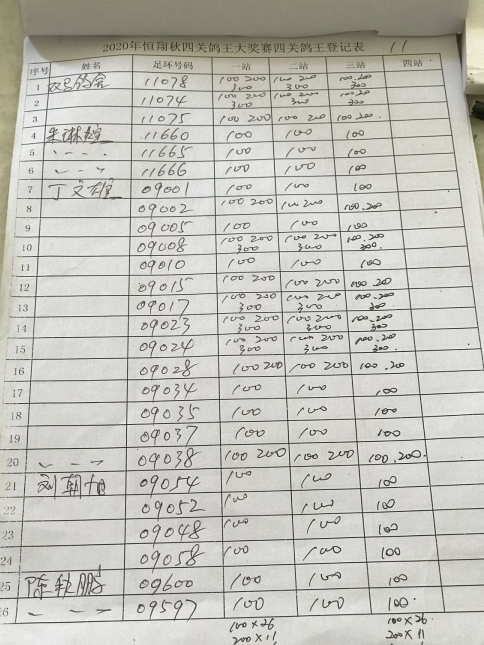 2020年恒翔秋四关鸽王大奖赛四关鸽王登记表 11
序号 姓名 足环号码 一站 二站 三站 四站
1 双号鸽舍 11078 100 200 300 100 200 300 100.200 300
2 11074 100 200 300 100 200 300 100.200 300
3 11075 100 200 100 200 100.200
4 11660 100 100 100
5 11665 100 100 100
6 11666 100 100 100
7 丁文雄 09001 100 100 100
8 09002 100 200 100 200 100.200
9 09005 100 100 100
10 09008 100 200 300 100 200 300 100.200 300
11 09010 100 100 100
12 09015 100 200 100 200 100 200
13 09017 100 200 300 100 200 300 100.200 300
14 09023 100 200 300 100 200 300 100.200 300
15 09024 100 200 300 100 200 300 100.200 300
16 09028 100 200 100 200 100.200
17 09034 100 100 100
18 09035 100 100 100
19 09037 100 100 100
20 09038 100 200 100 200 100.200
21 刘朝旭 09054 100 100 100
22 09052 100 100 100
23 09048 100 100 100
24 09058 100 100 100
25 陈秋鹏 09600 100 100 100
26 09597 100 100 100
100×26 100×26
200×11 200×11